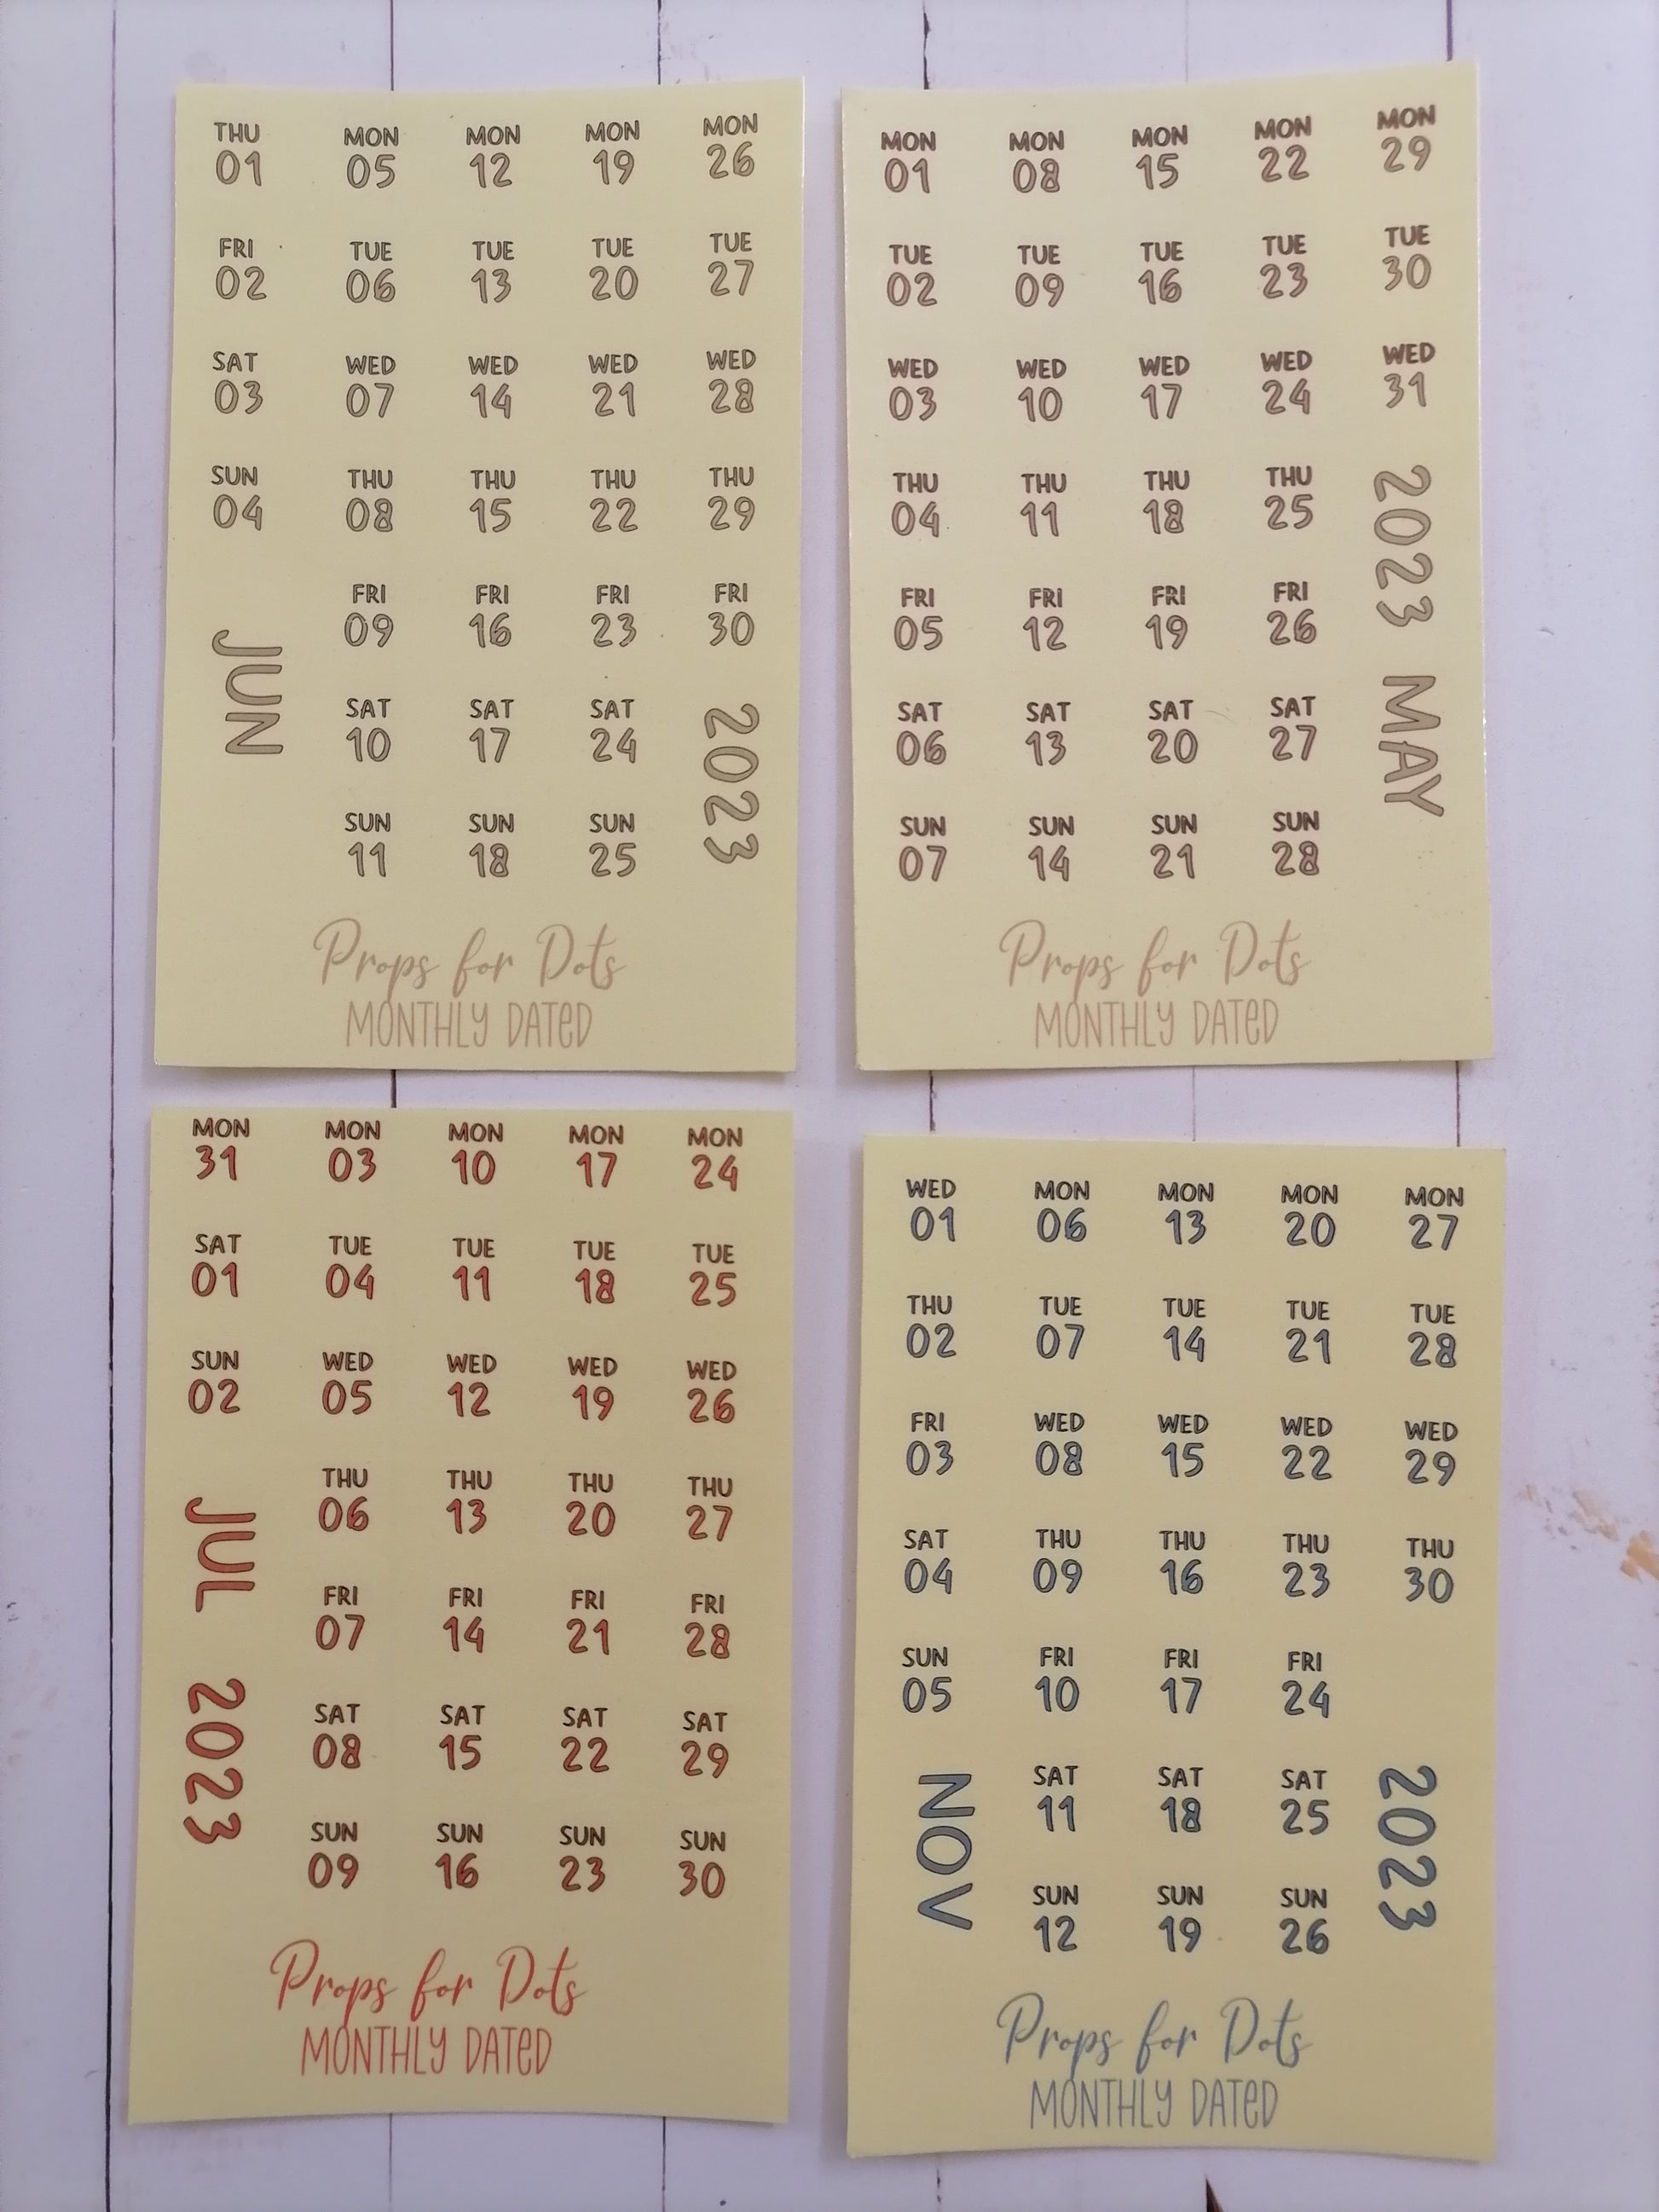 THU MON MON MON MON
01 05 12 19 26
FRI TUE TUE TUE TUE
02 06 13 20 27
SAT WED WED WED WED
03 07 14 21 28
SUN THU THU THU THU
04 08 15 22 29
FRI FRI FRI FRI
09 16 23 30
JUN
SAT SAT SAT
10 17 24
2023
SUN SUN SUN
11 18 25
Props for Dots
MONTHLY DATED
MON MON MON MON MON
01 08 15 22 29
TUE TUE TUE TUE TUE
02 09 16 23 30
WED WED WED WED WED
03 10 17 24 31
THU THU THU THU
04 11 18 25
2023 MAY
FRI FRI FRI FRI
05 12 19 26
SAT SAT SAT SAT
06 13 20 27
SUN SUN SUN SUN
07 14 21 28
Props for Dots
MONTHLY DATED
MON MON MON MON MON
31 03 10 17 24
SAT TUE TUE TUE TUE
01 04 11 18 25
SUN WED WED WED WED
02 05 12 19 26
THU THU THU THU
06 13 20 27
JUL 2023
FRI FRI FRI FRI
07 14 21 28
SAT SAT SAT SAT
08 15 22 29
SUN SUN SUN SUN
09 16 23 30
Props for Dots
MONTHLY DATED
WED MON MON MON MON
01 06 13 20 27
THU TUE TUE TUE TUE
02 07 14 21 28
FRI WED WED WED WED
03 08 15 22 29
SAT THU THU THU THU
04 09 16 23 30
SUN FRI FRI FRI
05 10 17 24
NOV
SAT SAT SAT
11 18 25
2023
SUN SUN SUN
12 19 26
Props for Dots
MONTHLY DATED